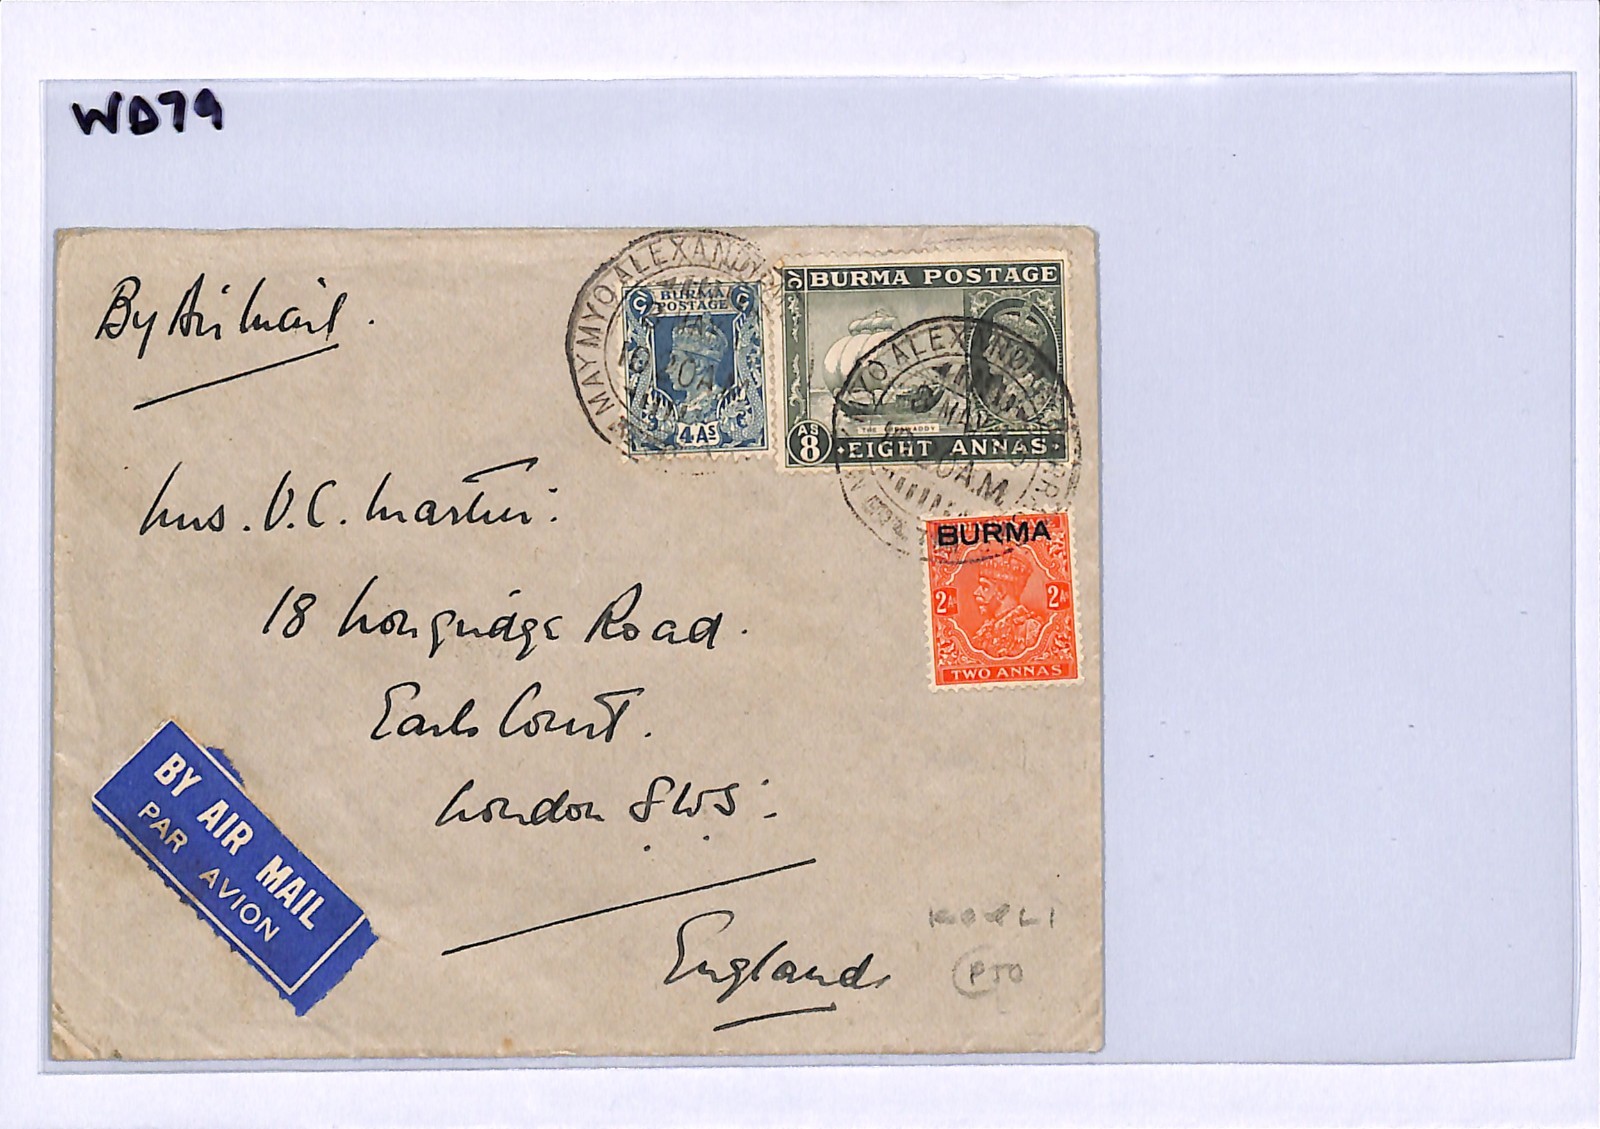 WD79
By Air Mail.
MAYMYO ALEXANDRA
BURMA
POSTAGE
10 20 A.M.
4 AS
BURMA POSTAGE
AS
8
THE IRRAWADDY
EIGHT ANNAS
MAYMYO ALEXANDRA
MAY
20 A.M.
BURMA
2 AS 2 AS
TWO ANNAS
Mrs. V.C. Martin:
18 Longridge Road.
Earls Court.
London SW5:
England
BY AIR MAIL
PAR AVION
P50